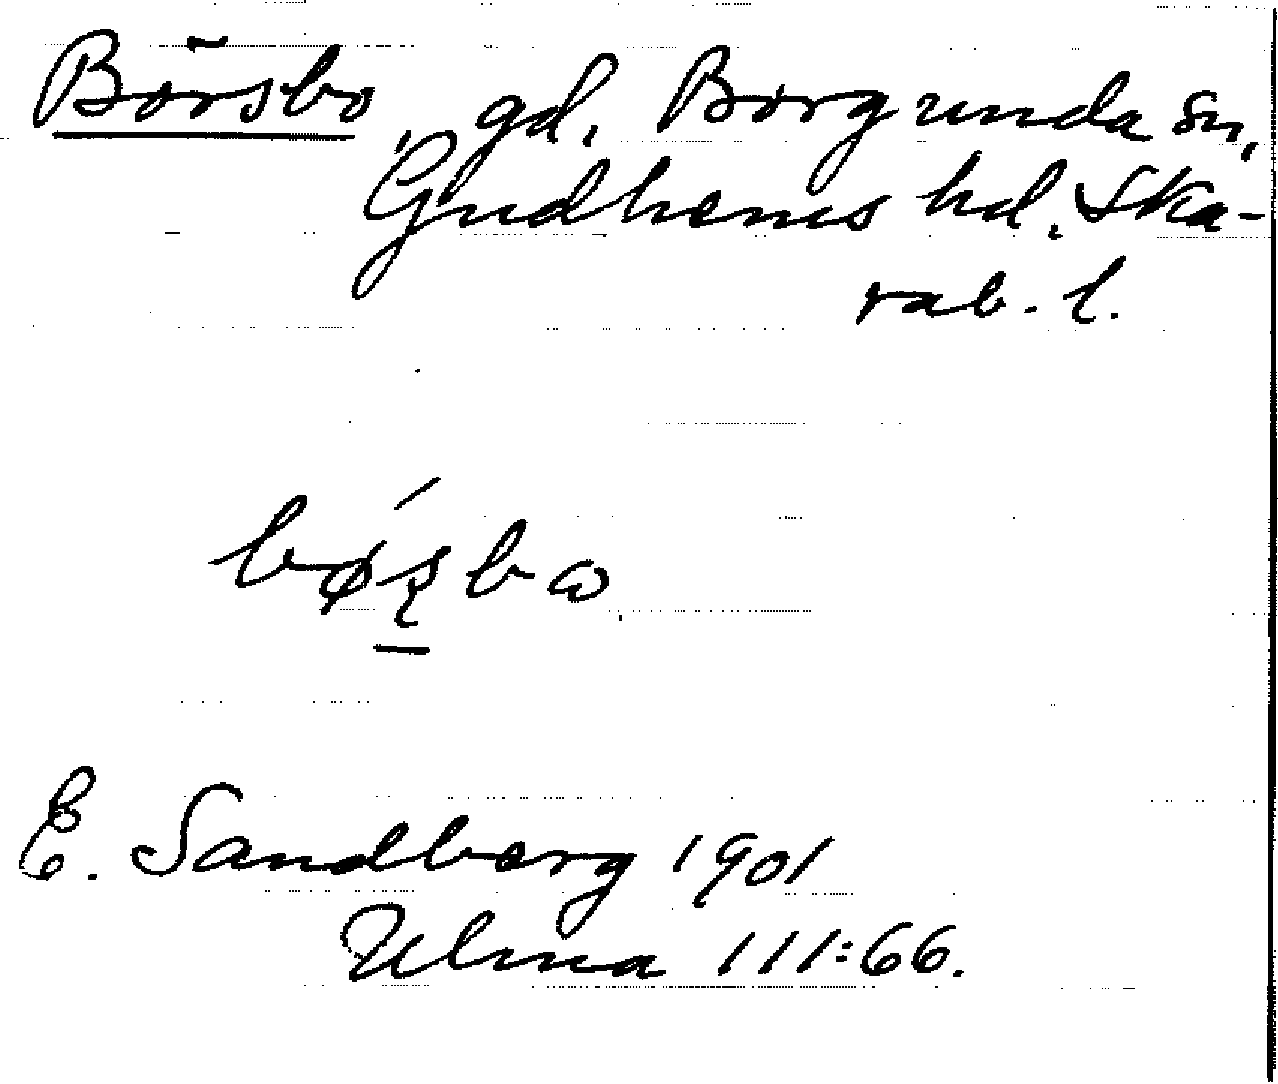 Börsbo, gd. Borgunda sn,
Gudhems hd. Ska-
rab. l.
bǿʂbω
E. Sandberg 1901
Ulma 111:66.